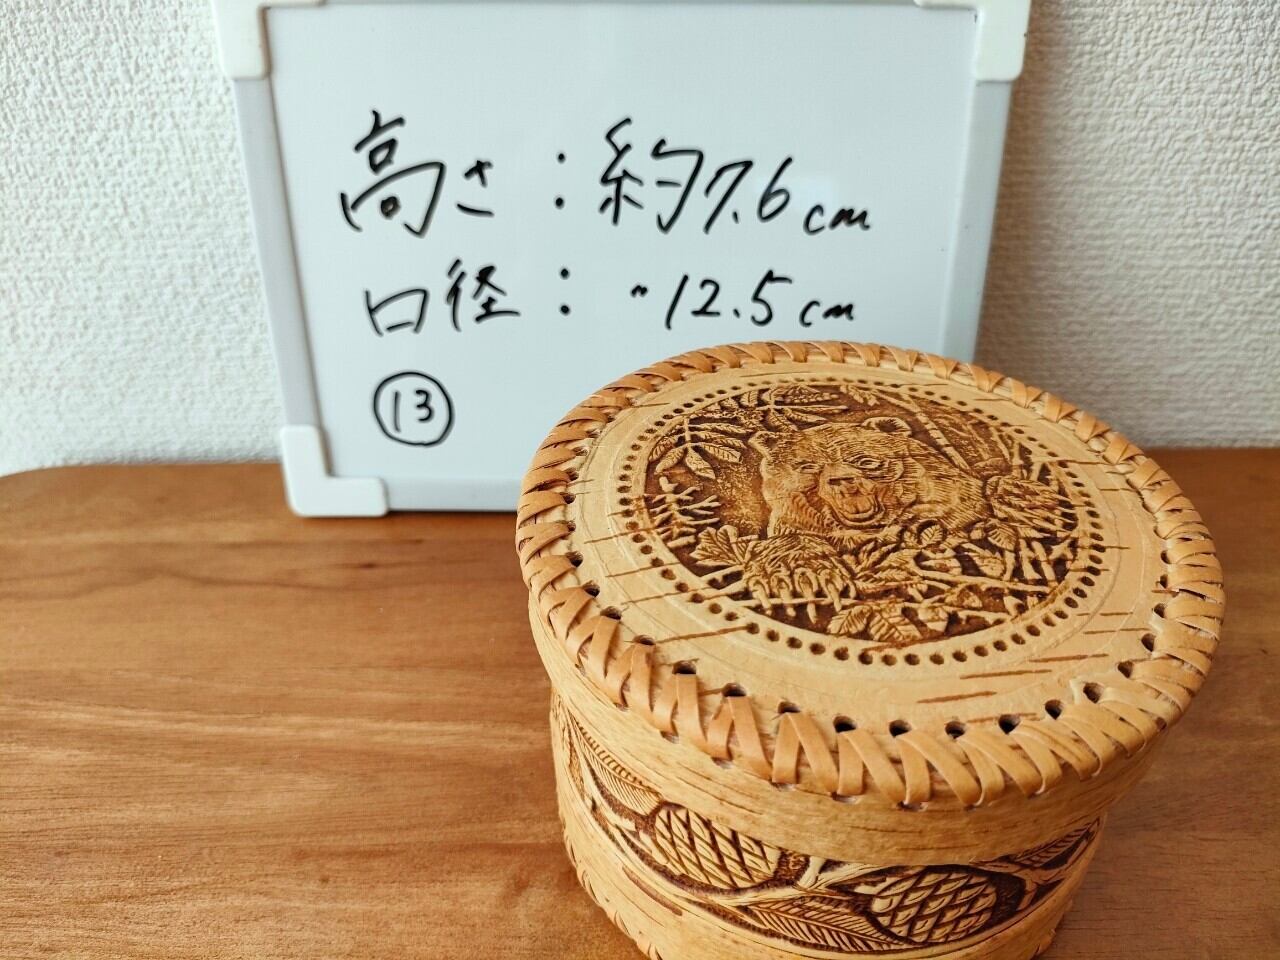 高さ：約7.6cm
口径：〃12.5cm
⑬